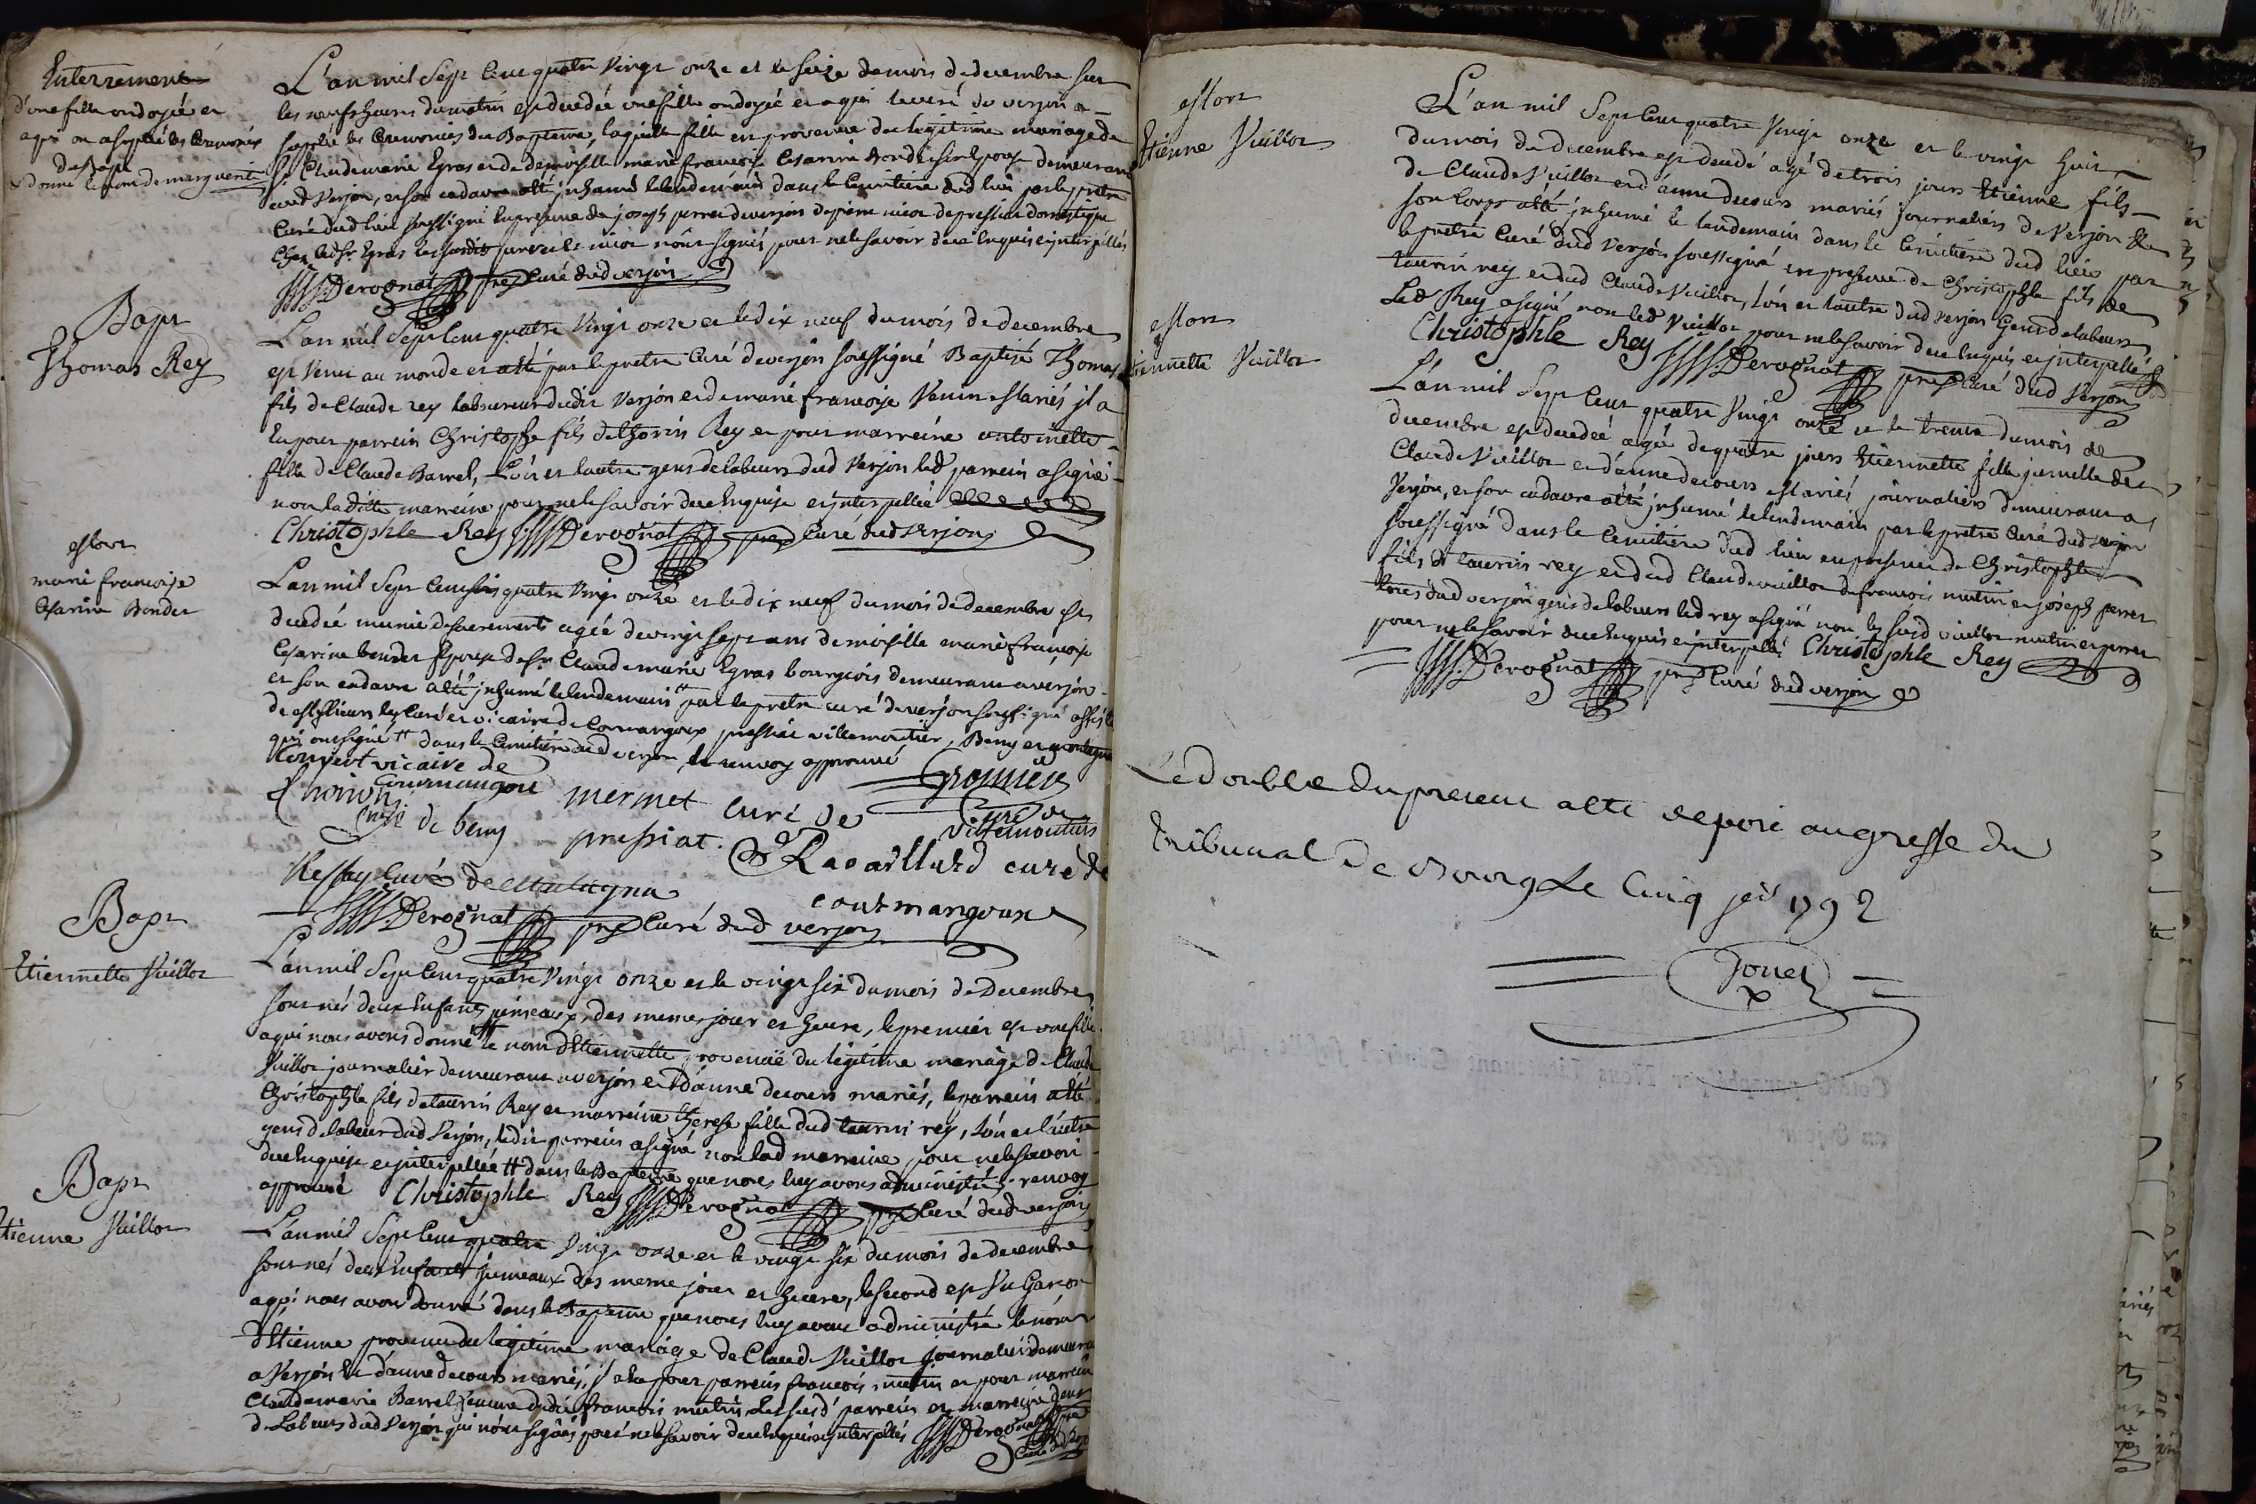 Enterrement
d'une fille ondoyée et
aqui on a supléé les Ceremonies
du Bapt
donné le nom de marguerite
L'an mil Sept Cent quatre Vingt onze et le seize du mois de decembre sur
les neuf heures du matin est decedée une fille ondoyée et a qui le curé de verjon a
supléé les Ceremonies du Bapteme, laquelle fille est provenue du legitime mariage de
Sr Claudemarie Egras et de Demoiselle marie francoise Cesarine Bondet son Epouse demeurant
aud Verjon, et son cadavre a été inhumé le lendemain dans le Cimitiere dud lieu par le pretre
Curé dud lieu soussigné en presence de joseph perret de verjon de pierre nicot de pressiat domestique
Chez led Sr Egras lesquels perret et nicot n'ont signés pour ne le savoir de ce enquis et interpellés
Derognat ptre Curé dud verjon
Bapt
Thomas Rey
L'an mil Sept Cent quatre Vingt onze et le dix neuf du mois de decembre
est venu au monde et a été par le pretre Curé de verjon soussigné Baptisé Thomas
fils de Claude rey laboureur dudit Verjon et de marie francoise Venin Mariés il a
Eu pour parrein Christophe fils de thorin Rey et pour marreine antoinette
fille de Claude Barrel, L'un et l'autre gens de labeurs dud Verjon led parrein a signé
non ladite marreine pour ne le savoir de ce Enquise et interpellée
Christophle Rey Derognat ptre Curé dud Verjon
Mort
marie francoise
Cesarine Bondet
L'an mil Sept Cent quatre Vingt onze et le dix neuf du mois de decembre est
decedée munie de sacrements agée de vingt sept ans demoiselle marie françoise
Cesarine bondet Epouse de Sr Claudemarie Egras bourgeois demeurant a verjon
et son cadavre a été inhumé le lendemain par le pretre curé de verjon soussigné assisté
de Messieurs les Curé et vicaire de Cormangoux pressiat villemoutier, Beny et montagna
qui ont signé dans le Cimitiere dud verjon, le renvoy approuvé
Convert vicaire de
Courmangou
Gromier
Curé de
Villemoutiers
curé de beny
mermet curé de
pressiat.
Racaillard curé de
courmangoux
Ressay curé de Montagna
Derognat ptre Curé dud verjon
Bapt
Etiennette Vuillot
L'an mil Sept Cent quatre Vingt onze et le vingt six du mois de Decembre
sont nés deux Enfants jumeaux des meme jour et heure, le premier est une fille
a qui nous avons donné le nom d'Etiennette provenuë du légitime mariage de Claude
Vuillot journalier demeurant a verjon et d'anne decours mariés, le parrein a été
Christophle fils de taurin Rey et marreine therese fille dud taurin rey, l'un et l'autre
gens de labeur dud Verjon, ledit parrein a signé non lad marreine pour ne le savoir
de ce Enquise et interpellée dans le Bapteme que nous luy avons administré renvoy
approuvé Christophle Rey Derognat ptre Curé dud verjon
Bapt
Etienne Vuillot
L'an mil Sept Cent quatre Vingt onze et le vingt six du mois de decembre
sont nés deux Enfants jumeaux des meme jour et heure, le second est Un Garcon
a qui nous avons donné dans le Bapteme que nous luy avons administré le nom
d'Etienne provenu du légitime mariage de Claude Vuillot journalier demeurant
a Verjon et d'anne decours mariés, il a Eu pour parrein francois mutin et pour marreine
Claudemarie Barrel femme dudit francois mutin Les susd parrein et marreine gens
de Labeurs dud Verjon qui n'ont signés pour ne le savoir de ce enquis et interpellés Derognat ptre
Curé d Verjon
Mort
Etienne Vuillot
L'an mil Sept Cent quatre Vingt onze et le vingt huit
du mois de decembre est decedé agé de trois jours Etienne fils
de Claude Vuillot et d'anne decours mariés journaliers de Verjon et
son Corps a été inhumé le lendemain dans le Cimitiere dud lieu par
le pretre Curé dud Verjon soussigné en presence de Christophle fils de
taurin rey et dud Claude Vuillot, l'un et l'autre dud verjon Gens de labeurs
Led Rey a signé non led Vuillot pour ne le savoir de ce Enquis et interpellé
Christophle Rey Derognat ptre Curé dud Verjon
Mort
Etiennette Vuillot
L'an mil Sept Cent quatre Vingt onze et le trente du mois de
decembre est decedée agée de quatre jours Etiennette fille jumelle de
Claude Vuillot et d'anne decours Mariés journaliers demeurant a
Verjon, et son cadavre a été inhumé le lendemain par le pretre Curé dud verjon
soussigné dans le Cimitiere dud lieu en presence de Christophle
fils de taurin rey et dud Claude vuillot de francois mutin et joseph perret
tous dud verjon gens de labeurs led rey a signé non les susd vuillot mutin et perret
pour ne le savoir de ce Enquis et interpellé Christophle Rey
Derognat ptre Curé dud verjon
Le double du present a été deposé au greffe du
tribunal de Bourg Le Cinq jer 1792